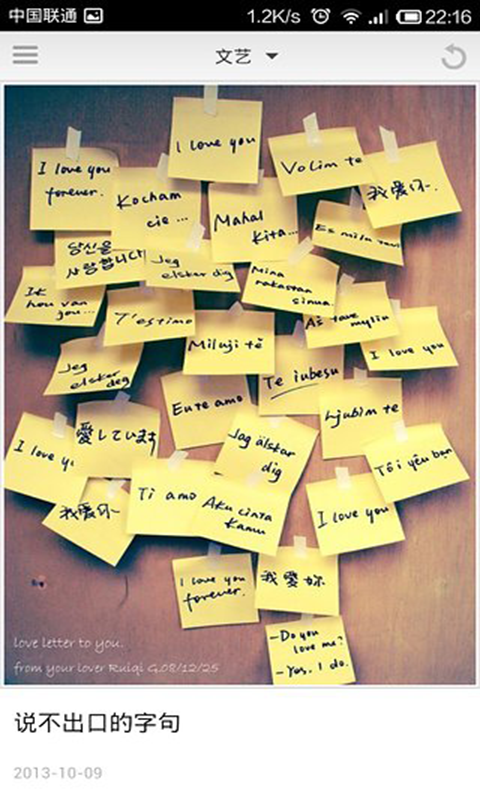 中国联通
1.2K/s
22:16
文艺
I love you
I love you
forever.
Volim te
我爱你.
Kocham
cie ...
Mahal
kita...
Es milu tevi
당신을
사랑합니다
Jeg
elsker dig
Mina
rakastan
sinua
Ik
hou van
jou...
T'estimo
Aš tave myliu
I love you
Miluji tě
Jeg
elsker deg
Te iubesu
Eu te amo
Ljubim te
愛しています
Jag älskar
dig
I love yo
Tôi yêu ban
我爱你
Ti amo
Aku cinta
Kamu
I love you
I love you
forever.
我愛妳
-Do you
love me?
-Yes, I do.
love letter to you.
from your lover Ruiqi G.08/12/25
说不出口的字句
2013-10-09